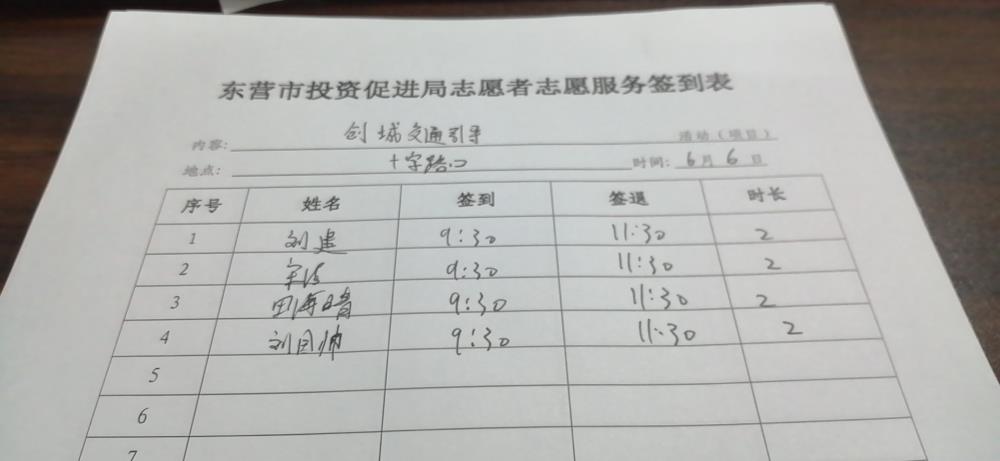 东营市投资促进局志愿者志愿服务签到表
内容: 创城交通引导 活动（项目）
地点: 十字路口 时间: 6月6日
序号 姓名 签到 签退 时长
1 刘建 9:30 11:30 2
2 9:30 11:30 2
3 田海晴 9:30 11:30 2
4 刘国帅 9:30 11:30 2
5
6
7